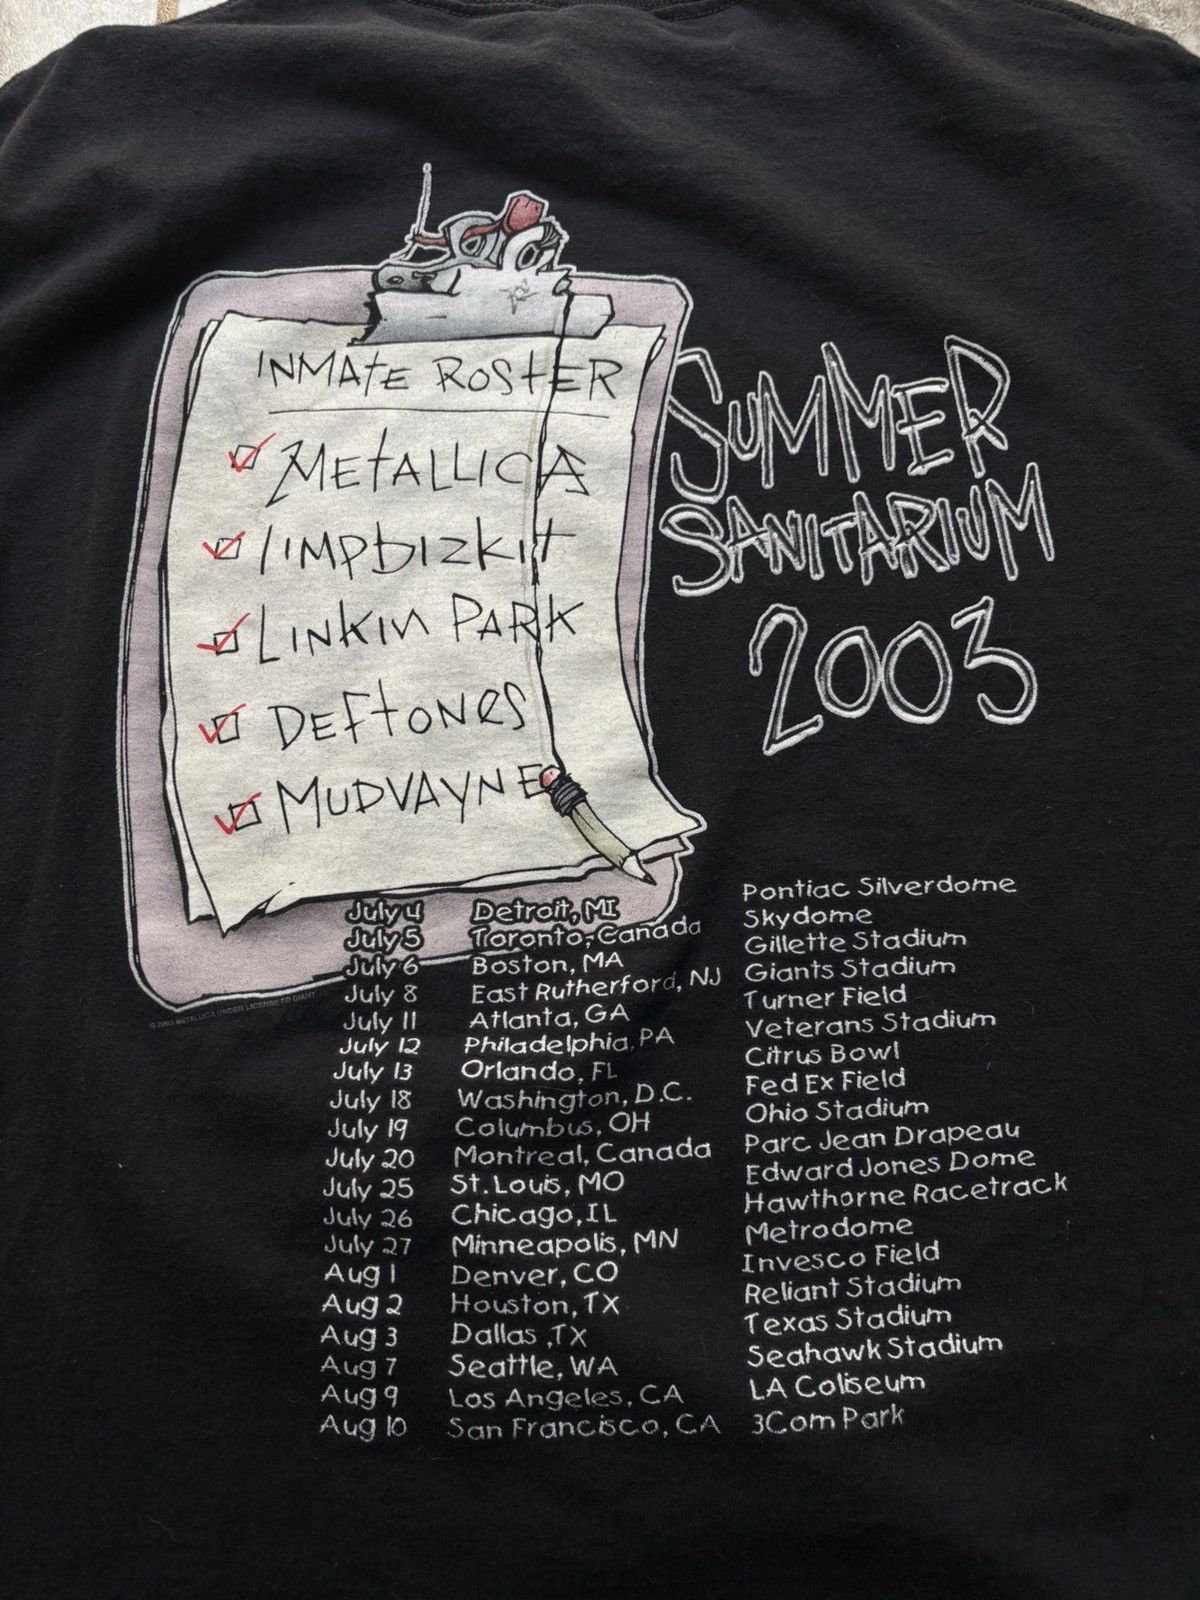 INMATE ROSTER
METALLICA
limpbizkit
LINKIN PARK
DEFTONES
MUDVAYNE
SUMMER
SANITARIUM
2003
July 4 Detroit, MI Pontiac Silverdome
July 5 Toronto, Canada Skydome
July 6 Boston, MA Gillette Stadium
July 8 East Rutherford, NJ Giants Stadium
July 11 Atlanta, GA Turner Field
July 12 Philadelphia, PA Veterans Stadium
July 13 Orlando, FL Citrus Bowl
July 18 Washington, D.C. Fed Ex Field
July 19 Columbus, OH Ohio Stadium
July 20 Montreal, Canada Parc Jean Drapeau
July 25 St. Louis, MO Edward Jones Dome
July 26 Chicago, IL Hawthorne Racetrack
July 27 Minneapolis, MN Metrodome
Aug 1 Denver, CO Invesco Field
Aug 2 Houston, TX Reliant Stadium
Aug 3 Dallas ,TX Texas Stadium
Aug 7 Seattle, WA Seahawk Stadium
Aug 9 Los Angeles, CA LA Coliseum
Aug 10 San Francisco, CA 3Com Park
© 2003 METALLICA UNDER LICENSE TO GIANT